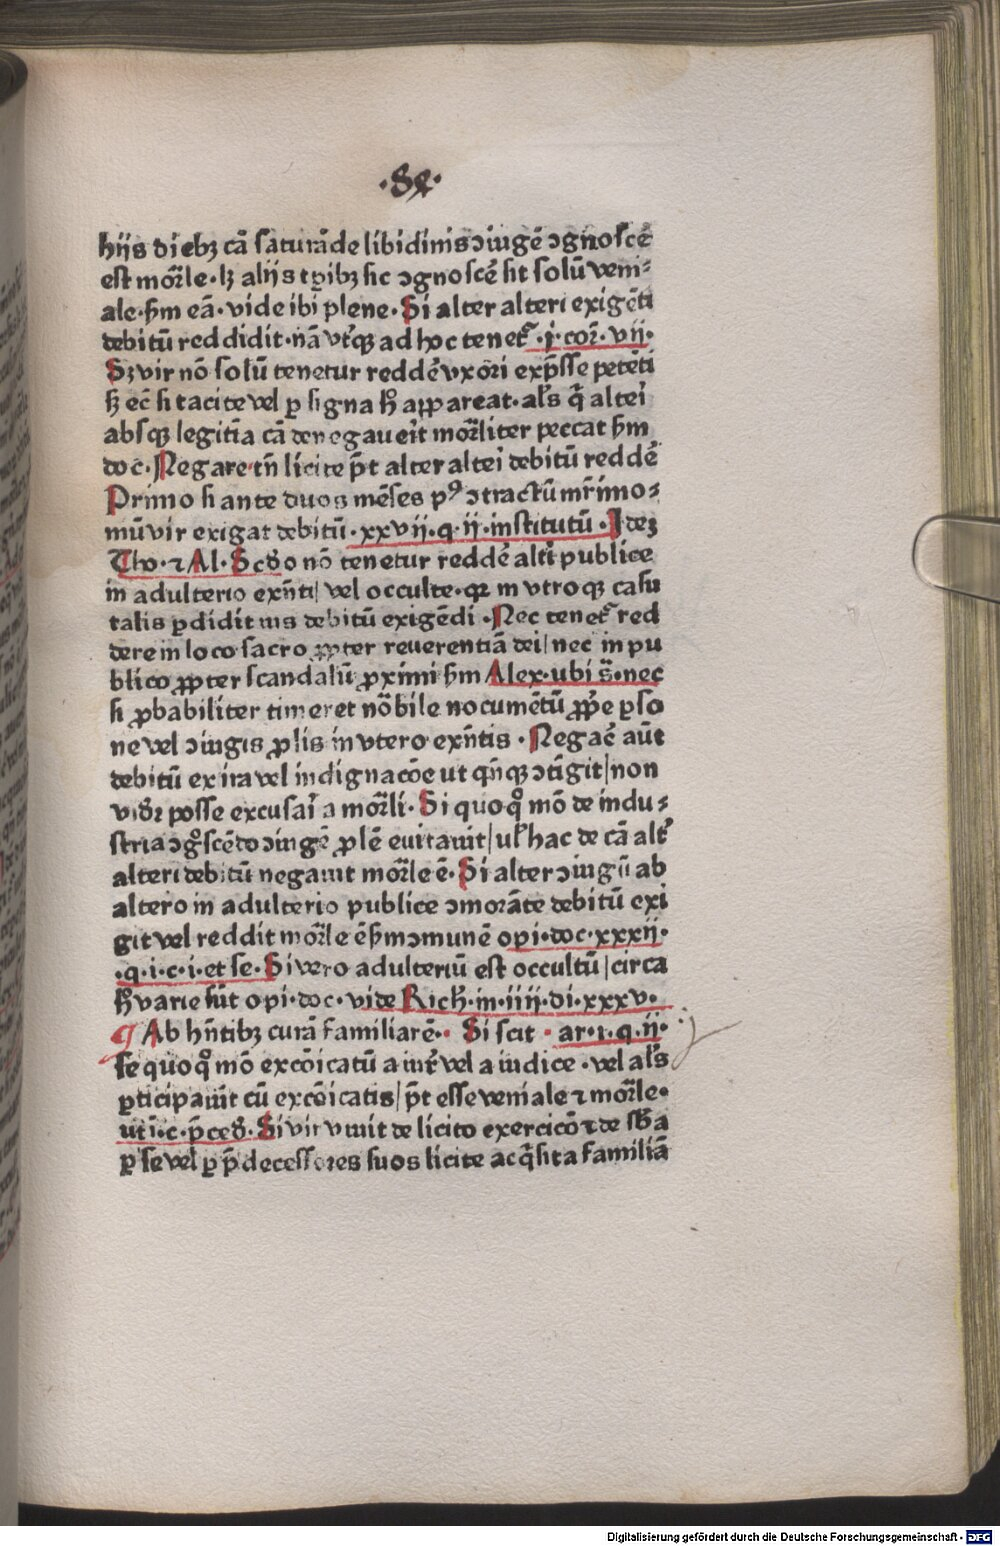 ·84·
hijs diebꝫ cā saturāde libidinis ↄiugē ↄgnoscē
est mor̄le·lꝫ alijs tꝑibꝫ sic ↄgnoscē sit solū veni⸗
ale·ẜm eā·vide ibi plene·Si alter alteri exigēti
debitū reddidit·nā vtꝙ ad hoc tenet᷑·j·cor̄·vij·
Sꝫ vir nō solū tenetur reddē vxori exp̄sse petēti
sꝫ ec̄ si tacite vel ꝑ signa h̄ appareat·al̄s q̄ alteri
absqꝫ legitīa cā denegauerit mor̄liter peccat ẜm
doc·Negare tn̄ licite p̄t alter alteri debitū reddē
Primo si ante duos mēses pꝰ ↄtractū mr̄imo⸗
niū vir exigat debitū·xxvij·q·ij·institutū·Ideꝫ
Tho·⁊ Al·Scd̄o nō tenetur reddē alt̄i publice
in adulterio exn̄ti/ vel occulte·qꝛ in vtroqꝫ casu
talis ꝑdidit ius debitū exigēdi·Nec tenet᷑ red
dere in loco sacro ꝓpter reuerentiā dei/ nec in pu
blico ꝓpter scandalū ꝓximi ẜm Alex·vbi s̄·nec
si ꝓbabiliter timeret nōbile nocumētū ꝓp̄e ꝑso
ne vel ↄiugis ꝓlis in vtero exn̄tis·Negāe aūt
debitū ex ira vel indignacōe ut qn̄qꝫ ↄtīgit/ non
vid̄ꝛ posse excusari a mor̄li·Si quoqͦ mō de indu⸗
stria ↄgͦscēdo ↄiugē ꝓlē euitauit/ ul̄ hac de cā alt̄
alteri debitū negauit mor̄le ē·Si alter ↄiugū ab
altero in adulterio publice ↄmorāte debitū exi
git vel reddit mor̄le ē ẜm ↄmunē opi·doc·xxxij·
·q·i·c·i·et se·Si vero adulteriū est occultū/ circa
h̄ varie sūt opi·doc·vide Rich̄·in·iiij·di·xxxv·
¶ Ab hn̄tibꝫ curā familiarē· Si scit·ar·1·q·ij·
se quoqͦ mō excōicatū a iur̄ vel a iudice·vel al̄s
ꝑticipauit cū excōicatis/ p̄t esse veniale ⁊ mor̄le·
ut i·c·p̄ced̄·Si vir viuit de licito exercicō ⁊ de sb̄a
ꝑ se vel ꝑ p̄decessores suos licite acq̄sita familiā
Digitalisierung gefördert durch die Deutsche Forschungsgemeinschaft - DFG